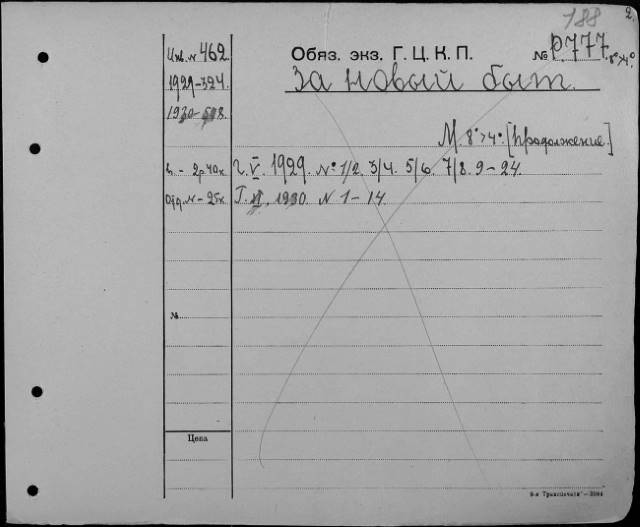 188 2.
Инв. № 462 Обяз. экз. Г. Ц. К. П. № Р777 8°>4°.
1929-324 За новый быт.
1930-
М. 8°>4°. [Продолжение.]
в. - 2р40к Г. V. 1929. № 1/2. 3/4. 5/6. 7/8. 9-24.
Отд. № - 25к Г. VI. 1930. N 1-14.
№
Цена
9-я Транспечати - 3984